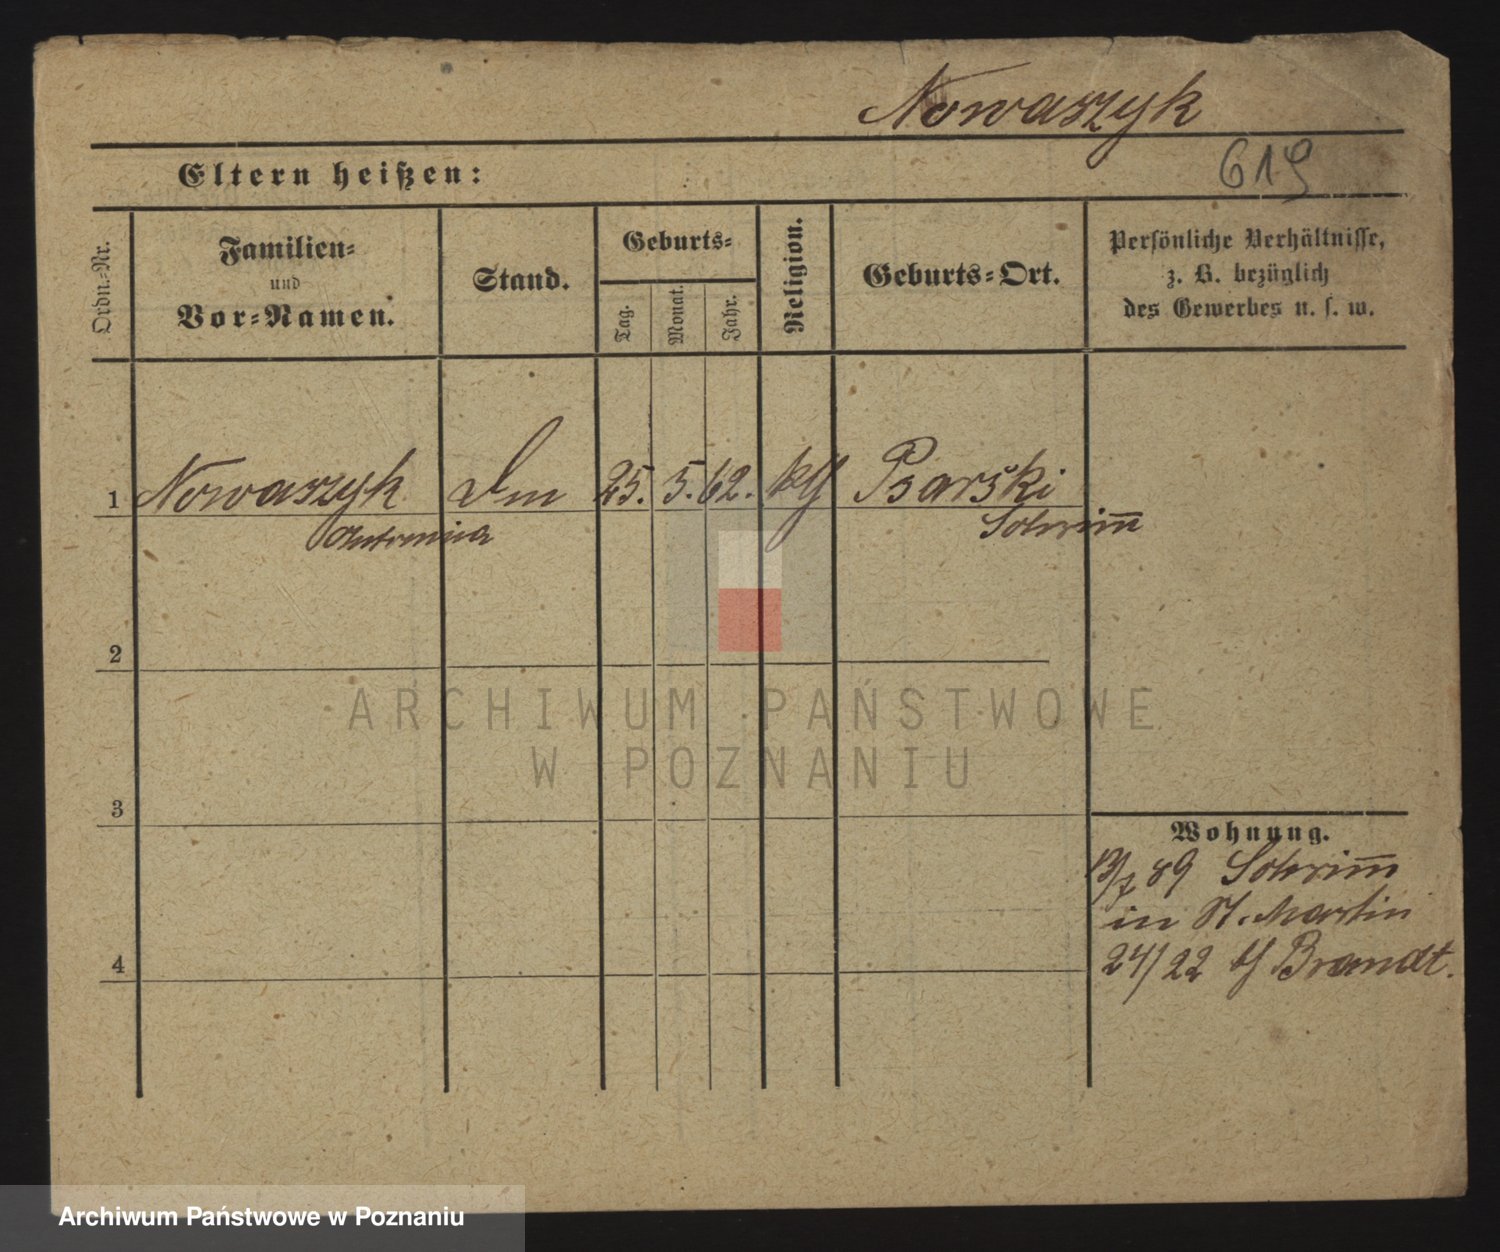 Nowaszyk
619
Eltern heißen:
Ordn.-Nr.
Familien-
und
Vor-Namen.
Stand.
Geburts-
Tag.
Monat.
Jahr.
Religion.
Geburts-Ort.
Persönliche Verhältnisse,
z. B. bezüglich
des Gewerbes u. s. w.
1 Nowaszyk 25. 5. 62. Psarski
Antonina Schrimm
2
3
4
Wohnung.
13/7 89 Schrimm
in St. Martin
24/22 Brandt.
ARCHIWUM PAŃSTWOWE
W POZNANIU
Archiwum Państwowe w Poznaniu